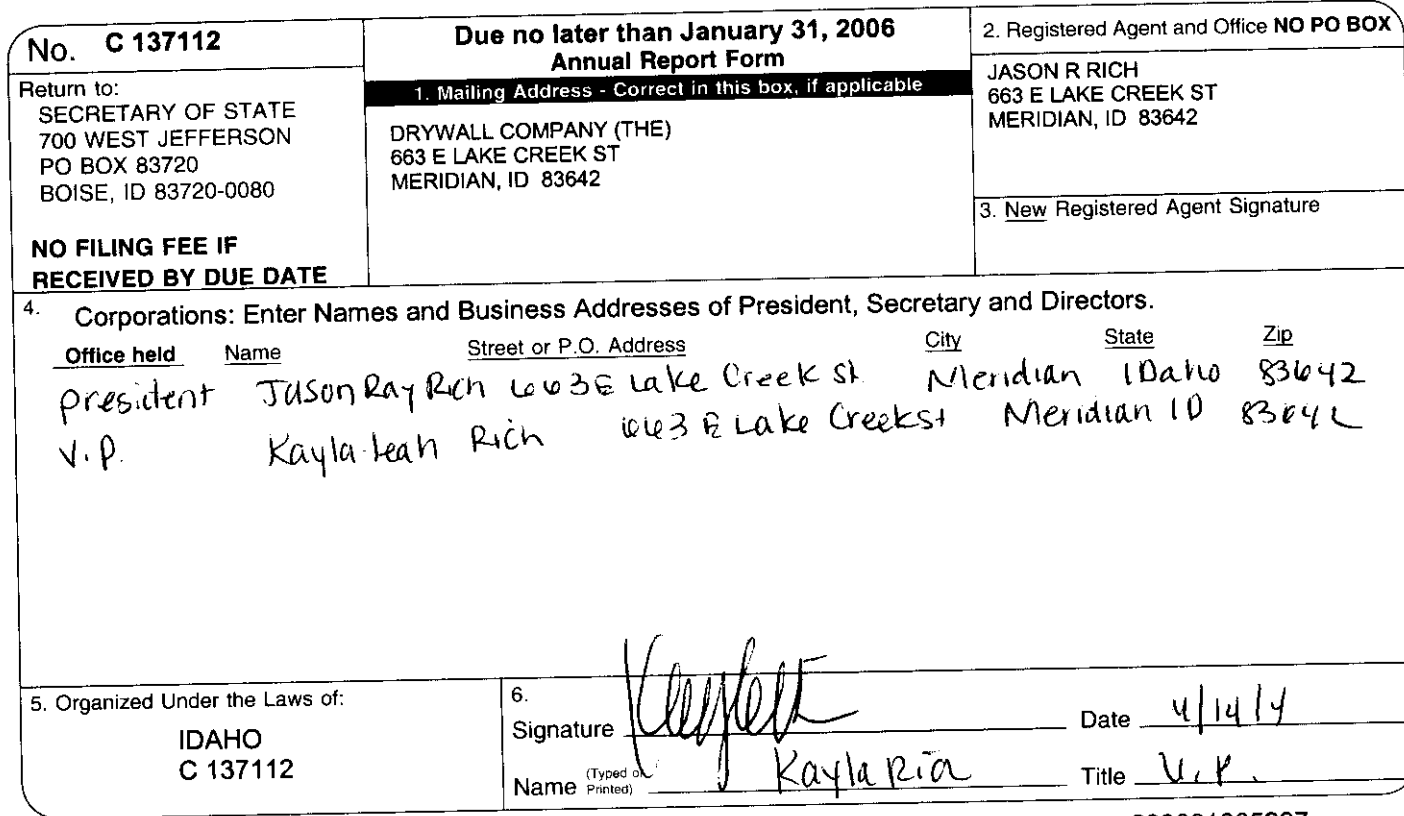 No. C 137112
Return to:
SECRETARY OF STATE
700 WEST JEFFERSON
PO BOX 83720
BOISE, ID 83720-0080
NO FILING FEE IF
RECEIVED BY DUE DATE
Due no later than January 31, 2006
Annual Report Form
1. Mailing Address - Correct in this box, if applicable
DRYWALL COMPANY (THE)
663 E LAKE CREEK ST
MERIDIAN, ID 83642
2. Registered Agent and Office NO PO BOX
JASON R RICH
663 E LAKE CREEK ST
MERIDIAN, ID 83642
3. New Registered Agent Signature
4. Corporations: Enter Names and Business Addresses of President, Secretary and Directors.
Office held Name Street or P.O. Address City State Zip
president Jason Ray Rich 663 E Lake Creek St Meridian IDaho 83642
V.P. Kayla Leah Rich 663 E Lake Creek St Meridian ID 83642
5. Organized Under the Laws of:
IDAHO
C 137112
6.
Signature Date 4/14/4
Name (Typed or Printed) Kayla Rich Title V.P.